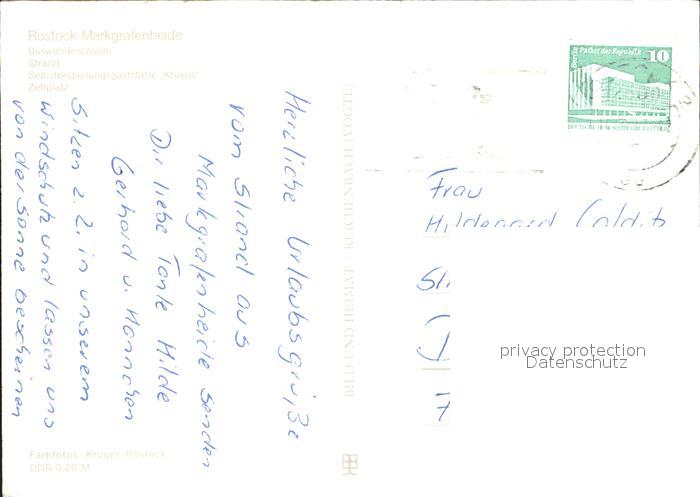 Rostock-Markgrafenheide
Buswendeschleife
Strand
Selbstbedienungsgaststätte „Krakus“
Zeltplatz
Herzliche Urlaubsgrüße
vom Strand aus
Markgrafenheide senden
Dir liebe Tante Hilde
Gerhard u. Hannchen
Sitzen z. Z. in unserem
Windschutz und lassen uns
von der Sonne bescheinen
Farbfotos: Krüger, Rostock
DDR 0,20 M
BILD UND HEIMAT · REICHENBACH (VOGTL)
Berlin Palast der Republik 10
DEUTSCHE DEMOKRATISCHE REPUBLIK
Frau
Hildegard
privacy protection
Datenschutz